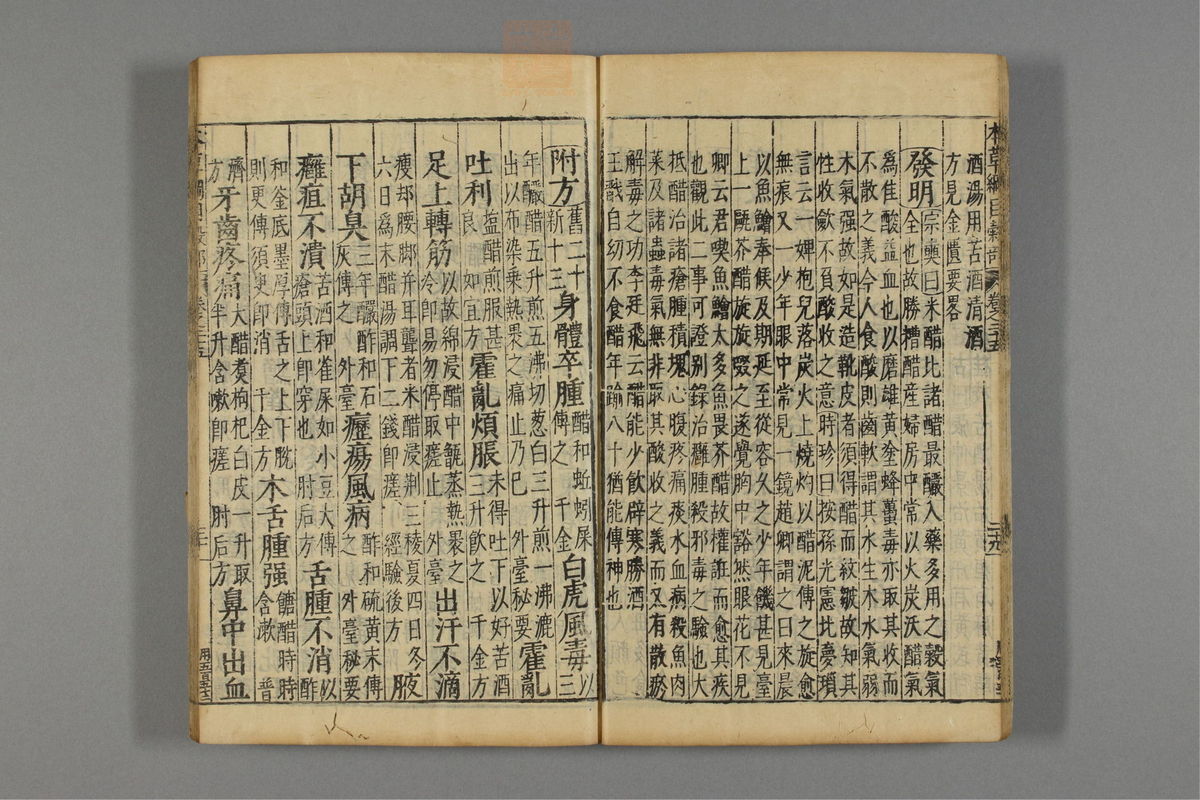 本草綱目穀部 卷之二十五 二十九
酒湯用苦酒清酒
方見金匱要畧
發明宗奭曰米醋比諸醋最釅入藥多用之穀氣
全也故勝糟醋産婦房中常以火炭沃醋氣
為佳酸益血也以磨雄黃塗蜂蠆毒亦取其收而
不散之義今人食酸則齒軟謂其水生木水氣弱
木氣强故如是造靴皮者須得醋而紋皺故知其
性收斂不負酸收之意時珍曰按孫光憲北夢瑣
言云一婢抱兒落炭火上燒灼以醋泥傅之旋愈
無痕又一少年眼中常見一鏡趙卿謂之曰來晨
以魚鱠奉候及期延至從容久之少年饑甚見臺
上一甌芥醋旋旋啜之遂覺胸中豁然眼花不見
卿云君喫魚鱠太多魚畏芥醋故權誑而愈其疾
也觀此二事可證别錄治癰腫殺邪毒之驗也大
抵醋治諸瘡腫積塊心腹疼痛痰水血病殺魚肉
菜及諸蟲毒氣無非取其酸收之義而又有散瘀
解毒之功李廷飛云醋能少飲辟寒勝酒
王戩自幼不食醋年踰八十猶能傳神也
附方舊二十新十三身體卒腫醋和蚯蚓屎傅之 千金白虎風毒以三
年釅醋五升煎五沸切葱白三升煎一沸漉
出以布染乗熱裹之痛止乃已 外臺秘要霍亂
吐利鹽醋煎服甚良 如宜方霍亂煩脹未得吐下以好苦酒三升飲之 千金方
足上轉筋以故綿浸醋中甑蒸熱裹之冷即易勿停取瘥止 外臺出汗不滴
瘦却腰脚并耳聾者米醋浸荆三稜夏四日冬
六日爲末醋湯調下二錢即瘥 經驗後方腋
下胡臭三年釅酢和石灰傅之 外臺癧瘍風病酢和硫黃末傅之 外臺秘要
癰疽不潰苦酒和雀屎如小豆大傅瘡頭上即穿也 肘后方舌腫不消以酢
和釜底墨厚傅舌之上下脫
則更傅須臾即消 千金方木舌腫强醣醋時時含漱 普
濟方牙齒疼痛大醋煑枸杞白皮一升取半升含嗽即瘥 肘后方鼻中出血